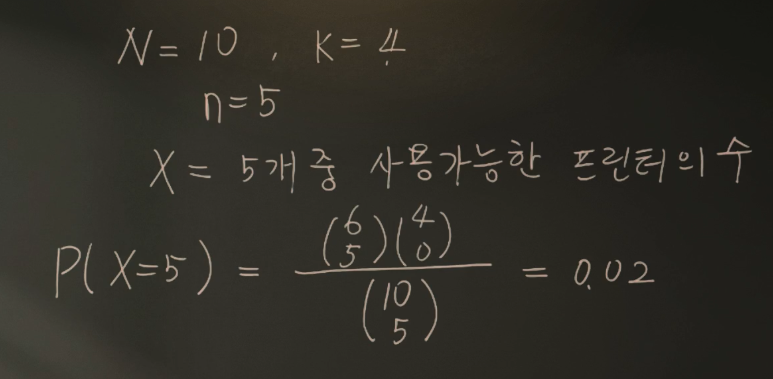 N = 10 , K = 4
n = 5
X = 5개 중 사용가능한 프린터의 수
P( X=5 ) = \frac{\binom{6}{5}\binom{4}{0}}{\binom{10}{5}} = 0.02